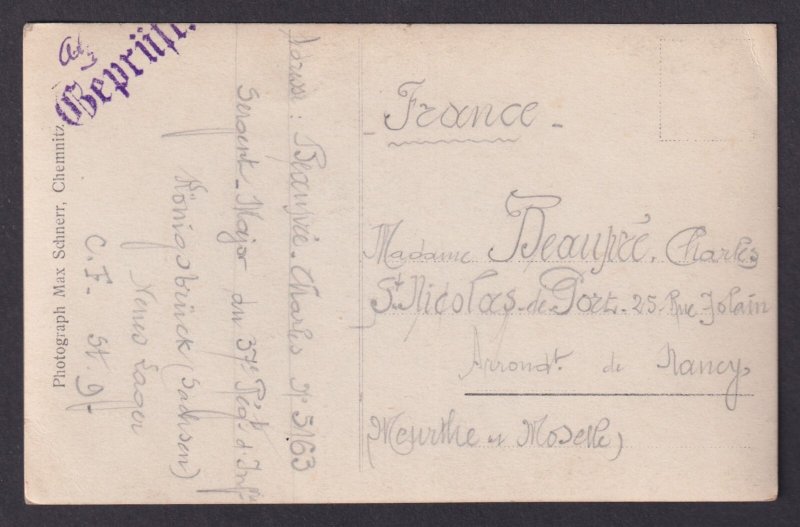 Geprüft.
Photograph Max Schnerr, Chemnitz.
Beaupré. Charles N° 5163
Sergent-Major du 37e Régt d'Infie
Königsbrück (Sachsen)
Neues Lager
- France -
Madame Beaupré. Charles
St Nicolas-de-Port-25-Rue Jolain
Arrondt. de Nancy.
(Meurthe et Moselle)